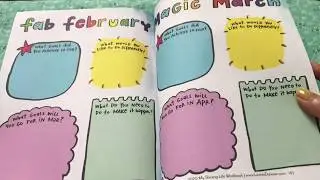 fab february
What Goals did
You Achieve in Feb?
What would You
Like to Do Differently?
What Goals will
You Go For in Mar?
What Do You Need to
Do to Make it Happen?
Magic March
What Goals did
You Achieve in Mar?
What would You
Like to Do Differently?
What Goals will
You Go For in Apr?
What Do You Need to
Do to Make it Happen?
My Shining Life Workbook